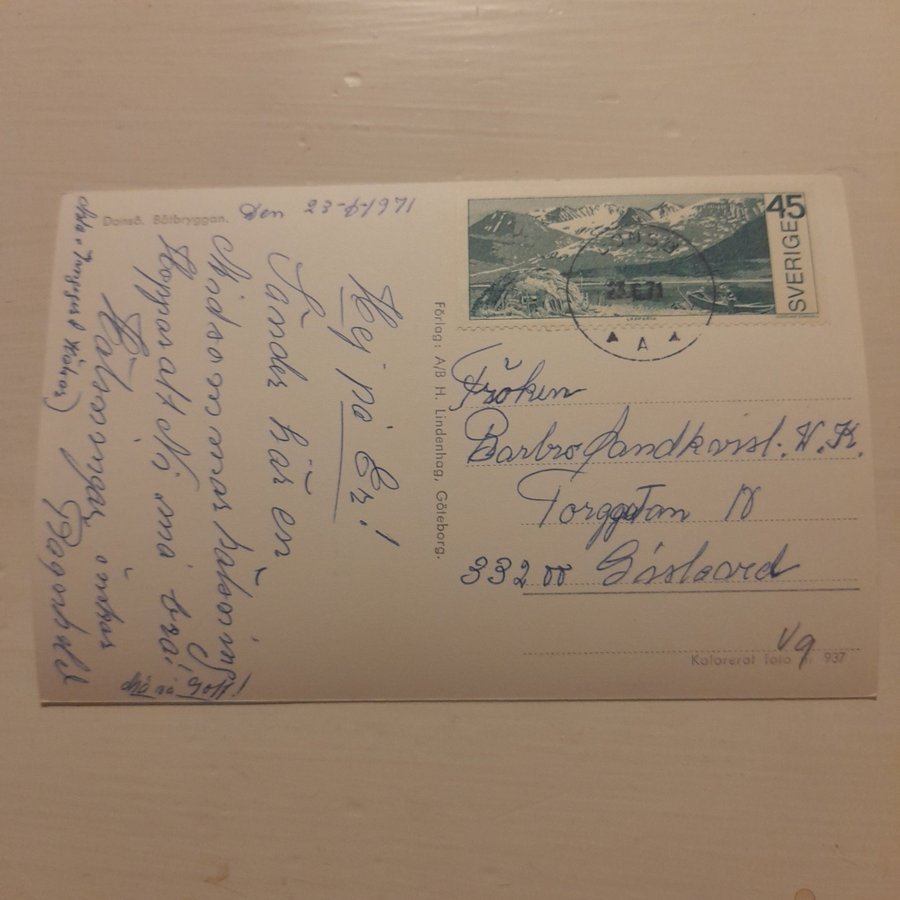 Donsö. Båtbryggan.
Den 23-6-1971
Hej på Er!
Sänder här en
Midsommarhälsning
Hoppas att Ni må bra!
Hälsningar önskar
Ragnhild
Förlag: A/B H. Lindenhag, Göteborg.
SVERIGE 45
DONSÖ
23.6.71
A
Fröken
Barbro Sandkvist. V.K.
Torggatan 18
332 00 Gislaved
Vg
Kolorerat foto nr 937